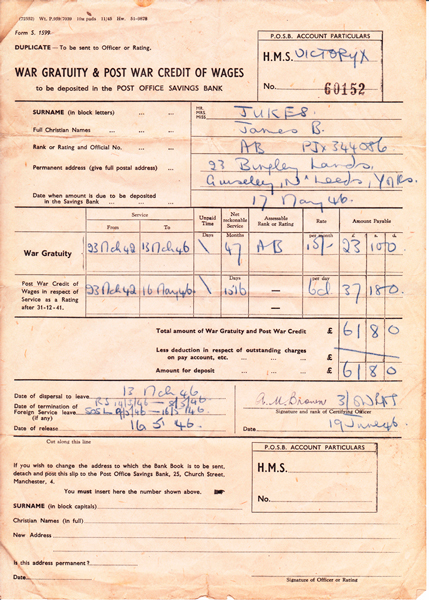 Form S. 1599.
DUPLICATE—To be sent to Officer or Rating.
P.O.S.B. ACCOUNT PARTICULARS
H.M.S. VICTORY X
No. 60152
WAR GRATUITY & POST WAR CREDIT OF WAGES
to be deposited in the POST OFFICE SAVINGS BANK
SURNAME (in block letters) ... ... MR. MRS. MISS JUKES.
Full Christian Names ... ... James B.
Rank or Rating and Official No. ... AB PJX344086
Permanent address (give full postal address) ... 23 Bingley Lands,
Guiseley, Nr Leeds, Yorks.
Date when amount is due to be deposited
in the Savings Bank ... ... ... 17 May 46.
Service Unpaid Time Nett reckonable Service Assessable Rank or Rating Rate Amount Payable
From To
Days Months per month £ s. d.
War Gratuity 23 Mch 42 13 Mch 46 \ 47 AB 10/- 23 10 0
Days per day
Post War Credit of
Wages in respect of
Service as a Rating
after 31-12-41.
23 Mch 42 16 May 46 \ 1516 — 6d 37 18 0
Total amount of War Gratuity and Post War Credit £ 61 8 0
Less deduction in respect of outstanding charges
on pay account, etc. ... ... £ —
Amount for deposit ... ... £ 61 8 0
Date of dispersal to leave 13 Mch 46
Date of termination of
Foreign Service leave
(if any)
Date of release 16 5 46.
Signature and rank of Certifying Officer
Date 19 June 46.
Cut along this line
If you wish to change the address to which the Bank Book is to be sent,
detach and post this slip to the Post Office Savings Bank, 25, Church Street,
Manchester, 4.
You must insert here the number shown above.
P.O.S.B. ACCOUNT PARTICULARS
H.M.S.
No.
SURNAME (in block capitals)
Christian Names (in full)
New Address
Is this address permanent?
Date
Signature of Officer or Rating